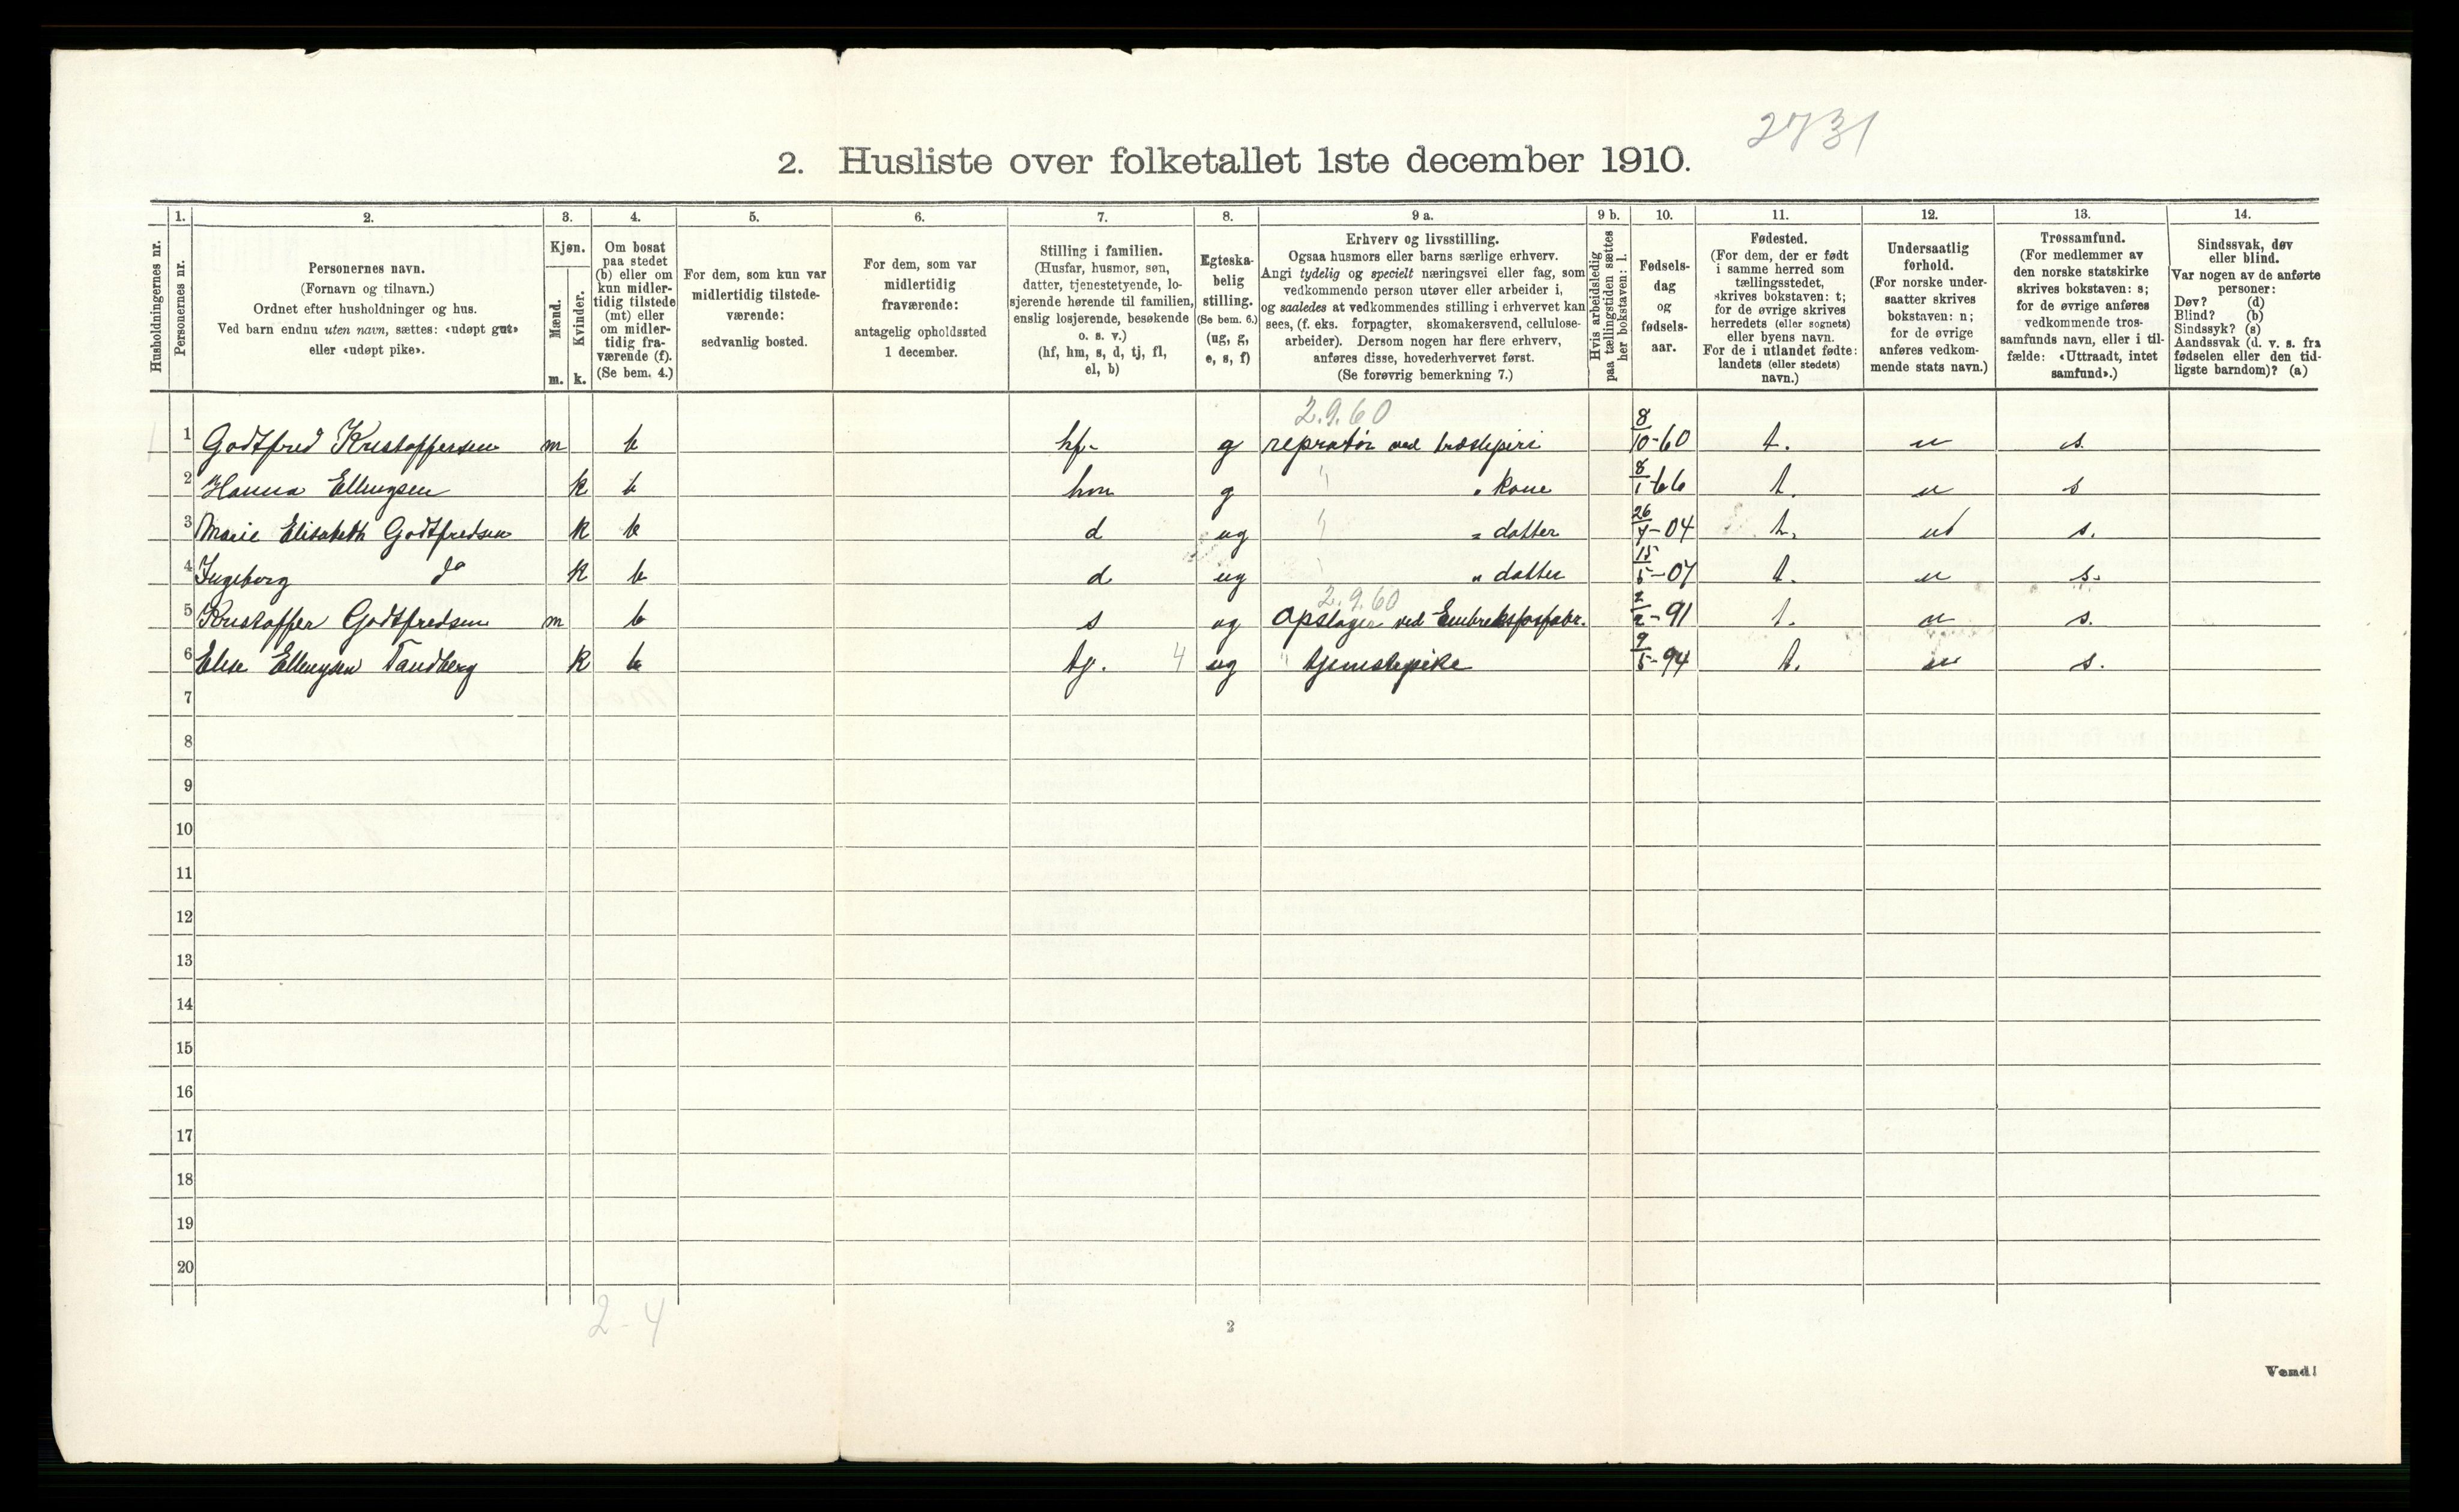 2731
2. Husliste over folketallet 1ste december 1910.
1. 2. 3. 4. 5. 6. 7. 8. 9 a. 9 b. 10. 11. 12. 13. 14.
Husholdningernes nr.
Personernes nr.
Personernes navn.
(Fornavn og tilnavn.)
Ordnet efter husholdninger og hus.
Ved barn endnu uten navn, sættes: «udøpt gut»
eller «udøpt pike».
Kjøn.
Mænd.
Kvinder.
m. k.
Om bosat
paa stedet
(b) eller om
kun midler-
tidig tilstede
(mt) eller
om midler-
tidig fra-
værende (f).
(Se bem. 4.)
For dem, som kun var
midlertidig tilstede-
værende:
sedvanlig bosted.
For dem, som var
midlertidig
fraværende:
antagelig opholdssted
1 december.
Stilling i familien.
(Husfar, husmor, søn,
datter, tjenestetyende, lo-
sjerende hørende til familien,
enslig losjerende, besøkende
o. s. v.)
(hf, hm, s, d, tj, fl,
el, b)
Egteska-
belig
stilling.
(Se bem. 6.)
(ug, g,
e, s, f)
Erhverv og livsstilling.
Ogsaa husmors eller barns særlige erhverv.
Angi tydelig og specielt næringsvei eller fag, som
vedkommende person utøver eller arbeider i,
og saaledes at vedkommendes stilling i erhvervet kan
sees, (f. eks. forpagter, skomakersvend, cellulose-
arbeider). Dersom nogen har flere erhverv,
anføres disse, hovederhvervet først.
(Se forøvrig bemerkning 7.)
Hvis arbeidsledig
paa tællingstiden sættes
her bokstaven: l.
Fødsels-
dag
og
fødsels-
aar.
Fødested.
(For dem, der er født
i samme herred som
tællingsstedet,
skrives bokstaven: t;
for de øvrige skrives
herredets (eller sognets)
eller byens navn.
For de i utlandet fødte:
landets (eller stedets)
navn.)
Undersaatlig
forhold.
(For norske under-
saatter skrives
bokstaven: n;
for de øvrige
anføres vedkom-
mende stats navn.)
Trossamfund.
(For medlemmer av
den norske statskirke
skrives bokstaven: s;
for de øvrige anføres
vedkommende tros-
samfunds navn, eller i til-
fælde: «Uttraadt, intet
samfund».)
Sindssvak, døv
eller blind.
Var nogen av de anførte
personer:
Døv? (d)
Blind? (b)
Sindssyk? (s)
Aandssvak (d. v. s. fra
fødselen eller den tid-
ligste barndom)? (a)
2.9.60
1 Godtfred Kristoffersen m b hf- g repratør ved træsliperi 8/10-60 t. n s.
2 Hanna Ellingsen k b hm g " kone 8/1-66 t. n s
3 Marie Elisabeth Godtfredsen k b d ug " datter 26/4-04 t. n s.
4 Ingeborg do k b d ug " datter 15/5-07 t. n s.
2.9.60
5 Kristoffer Godtfredsen m b s ug Opslager ved 2/2-91 t. n s.
6 Elise Ellingsen Tandberg k b tj. 4 ug tjenestepike 9/5-94 t. n s.
7
8
9
10
11
12
13
14
15
16
17
18
19
20
2-4
2
Vend!